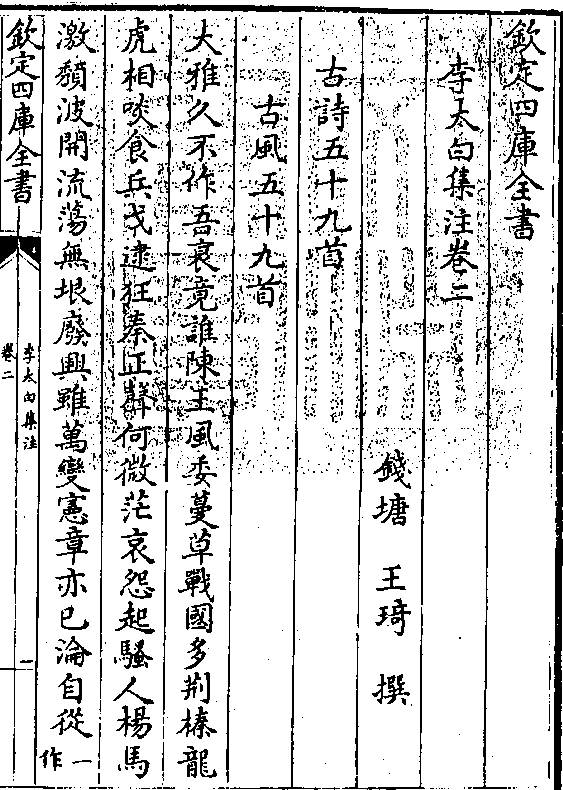 欽定四庫全書
李太白集注卷二
錢塘 王琦 撰
古詩五十九首
古風五十九首
大雅久不作吾衰竟誰陳王風委蔓草戰國多荆榛龍
虎相啖食兵戈逮狂秦正聲何微茫哀怨起騷人楊馬
激頽波開流蕩無垠廢興雖萬變憲章亦已淪自從一作
欽定四庫全書
李太白集注
卷二
一